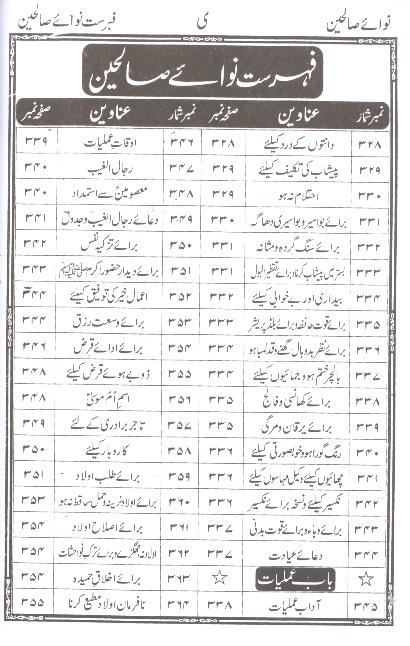 نوائے صالحین ی فہرست نوائے صالحین
فہرست نوائے صالحین
نمبر شمار عناوین صفحہ نمبر نمبر شمار عناوین صفحہ نمبر
۳۲۸ دانتوں کے درد کیلئے ۳۲۸ ۳۴۶ اوقات عملیات ۳۳۹
۳۲۹ پیشاب کی تکلیف کیلئے ۳۲۹ ۳۴۷ رجال الغیب ۳۴۰
۳۳۰ احتلام نہ ہو ۳۲۹ ۳۴۸ معصومینؑ سے استمداد ۳۴۰
۳۳۱ برائے بواسیر و بواسیری دھاگہ ۳۳۰ ۳۴۹ دعائے رجال الغیب و جدول ۳۴۱
۳۳۲ برائے سنگ گردہ و مثانہ ۳۳۱ ۳۵۰ برائے تزکیہ نفس ۳۴۲
۳۳۳ بستر میں پیشاب کرنا و برائے تقطیر البول ۳۳۱ ۳۵۱ برائے دیدار حضور اکرم ﷺ ۳۴۳
۳۳۴ بیداری اور بے خوابی کیلئے ۳۳۲ ۳۵۲ اعمال خیر کی توفیق کیلئے ۳۴۴
۳۳۵ برائے قوت حافظہ و برائے بلڈ پریشر ۳۳۳ ۳۵۳ برائے وسعت رزق ۳۴۴
۳۳۶ برائے نظر بد و بال گھنے و قد لمبا ہو ۳۳۴ ۳۵۴ برائے ادائے قرض ۳۴۶
۳۳۷ بالچر ختم ہو و جمائیوں کیلئے ۳۳۴ ۳۵۵ ڈوبے ہوئے قرض کیلئے ۳۴۸
۳۳۸ برائے کھانسی و فالج ۳۳۵ ۳۵۶ اسم ام موسیٰؑ ۳۴۸
۳۳۹ برائے یرقان و مرگی ۳۳۵ ۳۵۷ تاجر برادری کے لئے ۳۴۹
۳۴۰ رنگ گورا ہو و خوبصورتی کیلئے ۳۳۶ ۳۵۸ کاروبار کیلئے ۳۵۰
۳۴۱ چھائیوں کیلئے و کیل مہاسوں کیلئے ۳۳۶ ۳۵۹ برائے طلب اولاد ۳۵۱
۳۴۲ نکسیر کیلئے و نسخہ برائے نکسیر ۳۳۶ ۳۶۰ برائے اولاد نرینہ و حمل ساقط نہ ہو ۳۵۳
۳۴۳ برائے وباء و برائے قوت بدنی ۳۳۷ ۳۶۱ برائے اصلاح اولاد ۳۵۴
۳۴۴ دعائے عیادت ۳۳۷ ۳۶۲ اولاد نہ بگڑے و برائے ترک فواحشات ۳۵۴
☆ باب عملیات ☆ ۳۶۳ برائے اخلاق حمیدہ ۳۵۴
۳۴۵ آداب عملیات ۳۳۸ ۳۶۴ نافرمان اولاد مطیع کرنا ۳۵۵